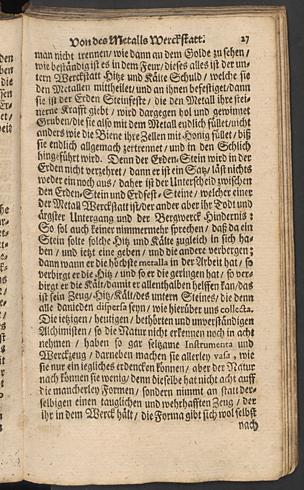 Von des Metalls Werckstatt. 27
man nicht trennen / wie dann an dem Golde zu sehen /
wie beständig ist es in dem Feur / dieses alles ist der un-
tern Werckstatt Hitz und Kälte Schuld / welche sie
den Metallen mittheilet / und an ihnen befestiget / dann
sie ist der Erden Steinfeste / die den Metall ihre stei-
nerne Krafft giebt / wird dargegen hol und gewinnet
Gruben / die sie also mit dem Metall endlich füllet / nicht
anders wie die Biene ihre Zellen mit Honig füllet / biß
sie endlich allgemach zertrennet / und in den Schlich
hingeführt wird. Denn der Erden-Stein wird in der
Erden nicht verzehret / dann er ist ein Satz / läst nichts
weder ein noch aus / daher ist der Unterscheid zwischen
den Erden-Stein und Erdfest-Steine / welcher einer
der Metall Werckstatt ist / der ander aber ihr Todt und
ärgster Untergang und der Bergwerck Hindernis :
So sol auch keiner nimmermehr sprechen / daß da ein
Stein solte solche Hitz und Kälte zugleich in sich ha-
ben / und itzt eine geben / und die andere verbergen ;
dann wann er die höchste metalla in der Arbeit hat / so
verbirgt er die Hitz / und so er die geringen hat / so ver-
birgt er die Kält / damit er allenthalben helffen kan / das
ist sein Zeug / Hitz / Kält / des untern Steines / die denn
alle damit den dispersa seyn / wie hierüber uns collecta.
Die itzigen / heutigen / bethörten und unverständigen
Alchimisten / so die Natur nicht erkennen noch in acht
nehmen / haben so gar seltzame Instrumenta und
Werckzeug / darneben machen sie allerley vasa , wie
sie nur ein iegliches erdencken können / aber der Natur
nach können sie wenig / denn dieselbe hat nicht acht auff
die mancherley Formen / sondern nimmt an statt der-
selbigen einen tauglichen und wehrhafften Zeug / der
ihr in dem Werck hält / die Forma gibt sich wol selbst
nach